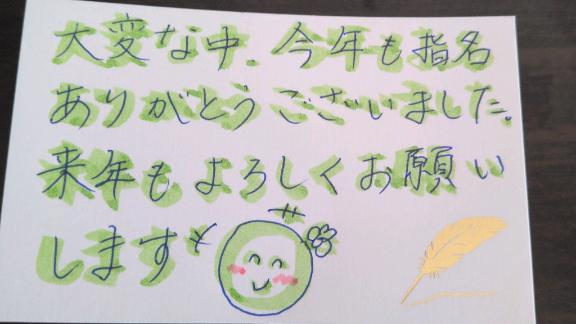 大変な中、今年も指名
ありがとうございました。
来年もよろしくお願い
します